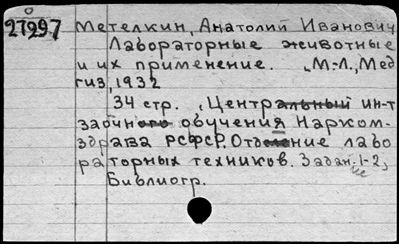 27297
Метелкин, Анатолий Иванович
Лабораторные животные
и их применение. М.-Л., Мед
гиз, 1932
34 стр. (Центральный ин-т
заочного обучения Нарком-
здрава РСФСР. Отделение лабо
раторных техников. Задан. 1-2,
Библиогр.